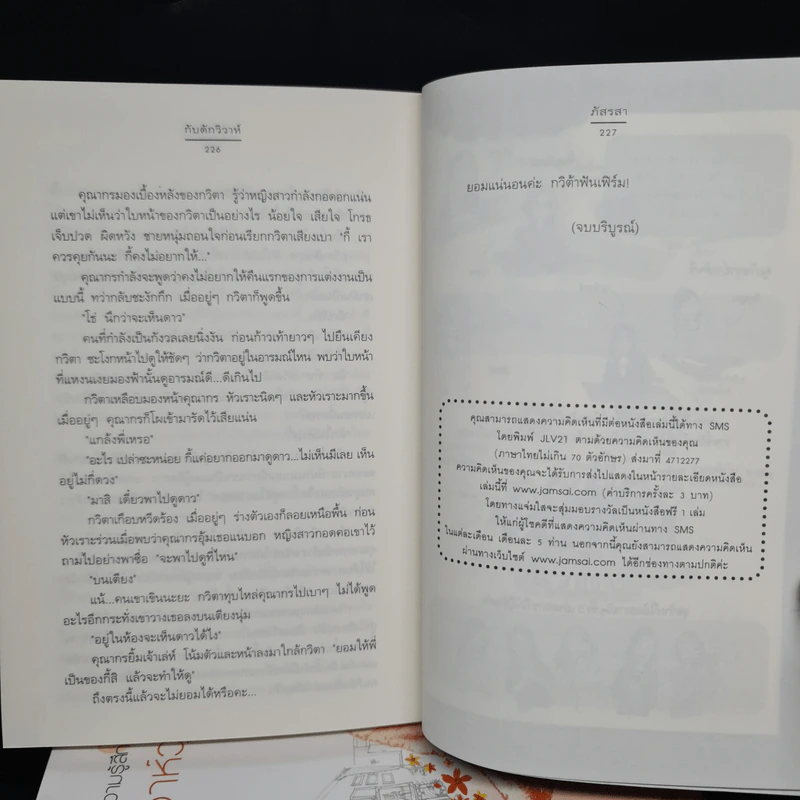 กับดักวิวาห์
226
คุณากรมองเบื้องหลังของกวิตา รู้ว่าหญิงสาวกำลังกอดอกแน่น
แต่เขาไม่เห็นว่าใบหน้าของกวิตาเป็นอย่างไร น้อยใจ เสียใจ โกรธ
เจ็บปวด ผิดหวัง ชายหนุ่มถอนใจก่อนเรียกกวิตาเสียงเบา "กี้ เรา
ควรคุยกันนะ กี้คงไม่อยากให้..."
คุณากรกำลังจะพูดว่าคงไม่อยากให้คืนแรกของการแต่งงานเป็น
แบบนี้ ทว่ากลับชะงักกึก เมื่ออยู่ๆ กวิตาก็พูดขึ้น
"โธ่ นึกว่าจะเห็นดาว"
คนที่กำลังเป็นกังวลเลยนิ่งงัน ก่อนก้าวเท้ายาวๆ ไปยืนเคียง
กวิตา ชะโงกหน้าไปดูให้ชัดๆ ว่ากวิตาอยู่ในอารมณ์ไหน พบว่าใบหน้า
ที่แหงนเงยมองฟ้านั้นดูอารมณ์ดี...ดีเกินไป
กวิตาเหลือบมองหน้าคุณากร หัวเราะนิดๆ และหัวเราะมากขึ้น
เมื่ออยู่ๆ คุณากรก็โผเข้ามารัดไว้เสียแน่น
"แกล้งพี่เหรอ"
"อะไร เปล่าซะหน่อย กี้แค่อยากออกมาดูดาว...ไม่เห็นมีเลย เห็น
อยู่ไม่กี่ดวง"
"มาสิ เดี๋ยวพาไปดูดาว"
กวิตาเกือบหวีดร้อง เมื่ออยู่ๆ ร่างตัวเองก็ลอยเหนือพื้น ก่อน
หัวเราะร่วนเมื่อพบว่าคุณากรอุ้มเธอแนบอก หญิงสาวกอดคอเขาไว้
ถามไปอย่างพาซื่อ "จะพาไปดูที่ไหน"
"บนเตียง"
แน้...คนเขาเขินนะยะ กวิตาทุบไหล่คุณากรไปเบาๆ ไม่ได้พูด
อะไรอีกกระทั่งเขาวางเธอลงบนเตียงนุ่ม
"อยู่ในห้องจะเห็นดาวได้ไง"
คุณากรยิ้มเจ้าเล่ห์ โน้มตัวและหน้าลงมาใกล้กวิตา "ยอมให้พี่
เป็นของกี้สิ แล้วจะทำให้ดู"
ถึงตรงนี้แล้วจะไม่ยอมได้หรือคะ...
ภัสรสา
227
ยอมแน่นอนค่ะ กวิต้าฟันเฟิร์ม!
(จบบริบูรณ์)
คุณสามารถแสดงความคิดเห็นที่มีต่อหนังสือเล่มนี้ได้ทาง SMS
โดยพิมพ์ JLV21 ตามด้วยความคิดเห็นของคุณ
(ภาษาไทยไม่เกิน 70 ตัวอักษร) ส่งมาที่ 4712277
ความคิดเห็นของคุณจะได้รับการส่งไปแสดงในหน้ารายละเอียดหนังสือ
เล่มนี้ที่ www.jamsai.com (ค่าบริการครั้งละ 3 บาท)
โดยทางแจ่มใสจะสุ่มมอบรางวัลเป็นหนังสือฟรี 1 เล่ม
ให้แก่ผู้โชคดีที่แสดงความคิดเห็นผ่านทาง SMS
ในแต่ละเดือน เดือนละ 5 ท่าน นอกจากนี้คุณยังสามารถแสดงความคิดเห็น
ผ่านทางเว็บไซต์ www.jamsai.com ได้อีกช่องทางตามปกติค่ะ